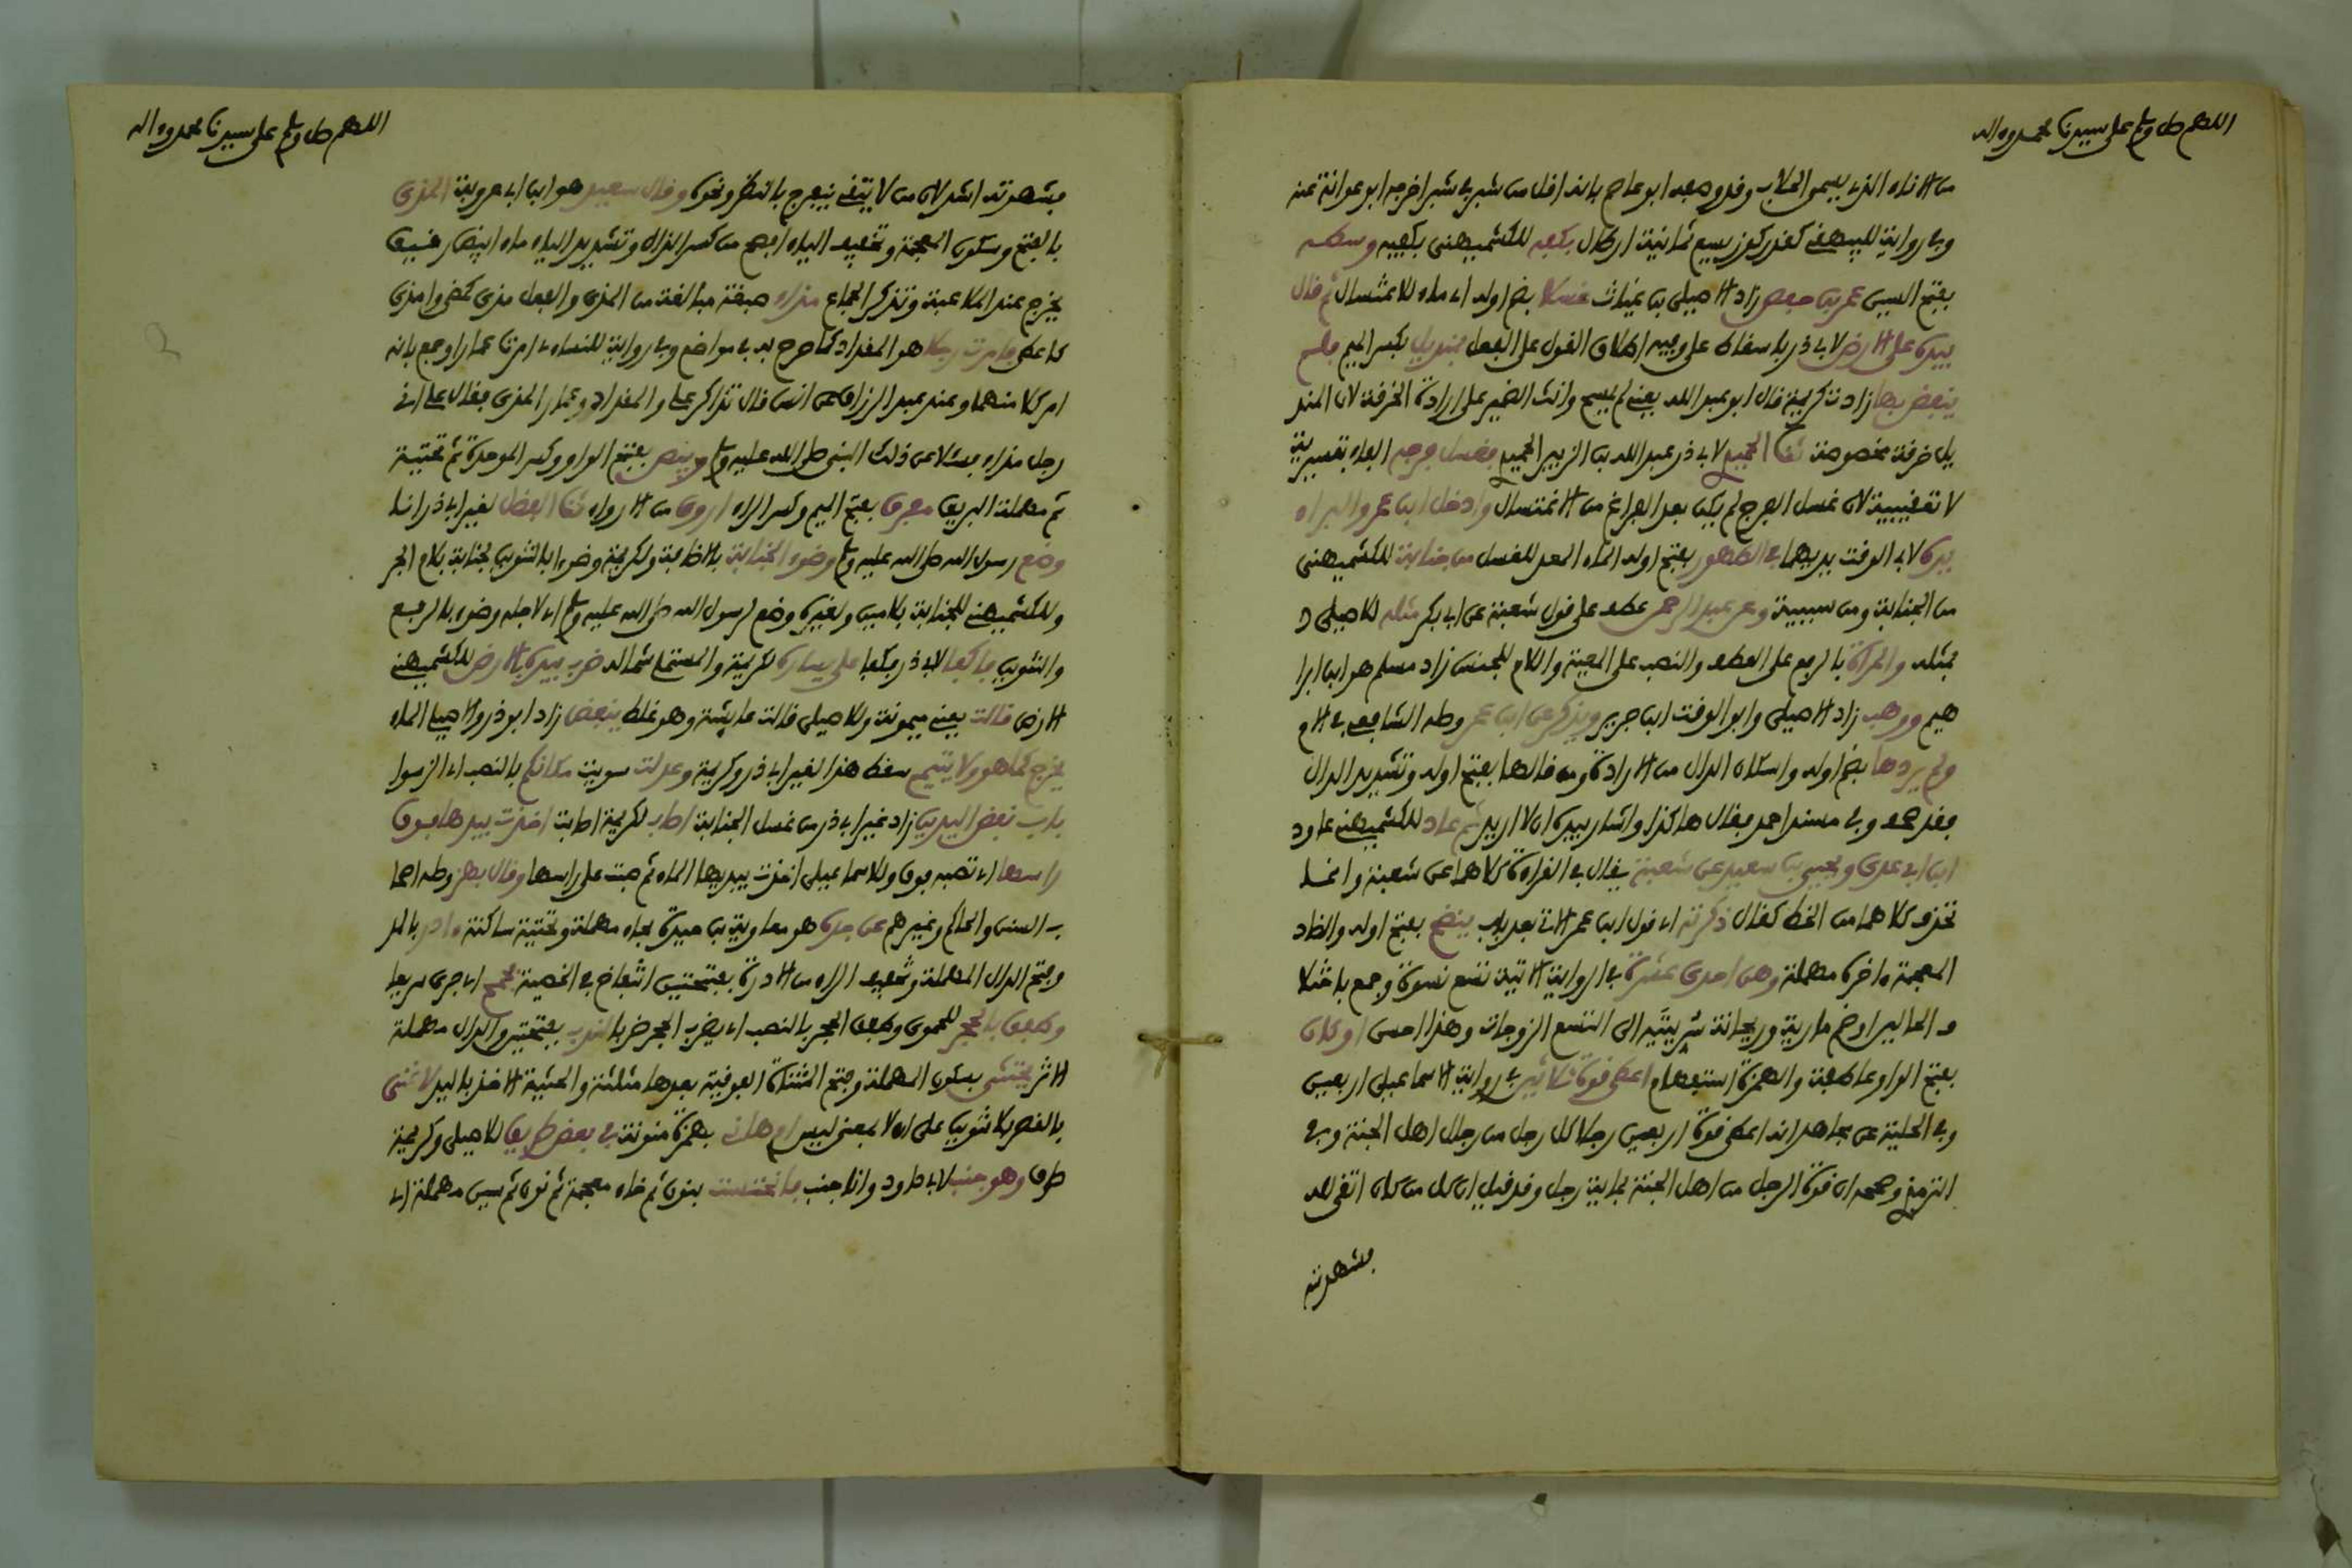 اللهم صل وسلم على سيدنا محمد وءاله
من الاناء الذي يسمى الحلاب وقد وصفه ابو عاصم بانه اقل من شبر في شبر اخرجه ابو عوانة عنه
وفي رواية للبيهقي كقدر كوز يسع ثمانية ارطال بكفه للكشميهني بكفيه وسط
بفتح السين عمر بن حفص زاد الاصيلي بن غياث غسلا بضم اوله اي ماء للاغتسال ثم قال
بيده على الارض لابي ذر باسقاط على وفيه اطلاق القول على الفعل بمنديل بكسر الميم فلم
ينفض بها زادت كريمة قال ابو عبد الله يعني لم يمسح وانث الضمير على ارادة الخرقة لان المند
يل خرقة مخصوصة ثنا الحميدي لابي ذر عبد الله بن الزبير الحميدي فغسل فرجه الفاء تفسيرية
لا تعقيبية لان غسل الفرج لم يكن بعد الفراغ من الاغتسال وادخل ابن عمر والبراء
يده لابي الوقت يديهما في الطهور بفتح اوله الماء المعد للغسل من جنابة للكشميهني
من الجنابة ومن سببية وعن عبد الرحمن عطف على قول شعبة عن ابي بكر مثله للاصيلي
بمثله والمراة بالرفع على العطف والنصب على المعية واللام للجنس زاد مسلم هو ابن ابرا
هيم ووهب زاد الاصيلي وابو الوقت ابن جرير ويذكر عن ابن عمر وصله الشافعي في الام
ولم يردها بضم اوله واسكان الدال من الارادة ومن قالها بفتح اوله وتشديد الدال
فقد صحف وفي مسند احمد فقال هاكذا واشار بيده ان لا اريد ثم عاد للكشميهني عاود
ابن ابي عدي ويحيى بن سعيد عن شعبة يقال في القراءة كلاهما عن شعبة وانما
تحذف كلاهما من الخط كقال ذكرته اي قول ابن عمر الاتي بعد باب ينضخ بفتح اوله والضاد
المعجمة ءاخره مهملة وهن احدى عشرة في الرواية الاتية تسع نسوة وجمع باحتمال
انه ضم مارية وريحانة سريتيه الى التسع الزوجات وهذا احسن او كان
بفتح الواو عاطفة والهمزة استفهام اعطي قوة ثلاثين في رواية الاسماعيلي اربعين
وفي الحلية عن مجاهد انه اعطي قوة اربعين رجلا كل رجل من رجال اهل الجنة وفي
الترمذي وصححه ان قوة الرجل من اهل الجنة بماية رجل وقد قيل ان كل من كان اتقى لله
فشهوته
اللهم صل وسلم على سيدنا محمد وءاله
فشهوته اشد لان من لا يتقي ينفرج بالنظر ونحوه وقال سعيد هو ابن ابي عروبة المذي
بالفتح وسكون المعجمة وتخفيف الياء افصح من كسر الذال وتشديد الياء ماء ابيض رقيق
يخرج عند الملاعبة وتذكر الجماع مذاء صيغة مبالغة من المذي والفعل مذى كمضى وامذى
كاعطى فامرت رجلا هو المقداد كما صرح به في مواضع وفي رواية للنساءي امرنا عمارا وجمع بانه
امر كلا منهما وعند عبد الرزاق عن انس قال تذاكر علي والمقداد وعمار المذي فقال علي اني
رجل مذاء فسلا عن ذلك النبي صلى الله عليه وسلم وبيص بفتح الواو وكسر الموحدة ثم تحتية
ثم مهملة البريق مفرق بفتح الميم وكسر الراء اروى من الارواء ثنا الفضل لغير ابي ذر انا
وضع رسول الله صلى الله عليه وسلم وضوء الجنابة بالاضافة ولكريمة وضوءا بالتنوين لجنابة بلام الجر
وللكشميهني للجنابة بلامين ولغيره وضع لرسول الله صلى الله عليه وسلم اي لاجله وضوء بالرفع
والتنوين فاكفا لابي ذر فكفا على يساره لكريمة والمستملي شماله ضرب بيده بالارض للكشميهني
الارض قالت يعني ميمونة وللاصيلي قالت عايشة وهو غلط ينفض زاد ابو ذر والاصيلي الماء
يخرج كما هو ولا يتيمم سقط هذا لغير ابي ذر وكريمة وعدلت سويت مكانكم بالنصب اي الزموا
باب نفض اليدين زاد غير ابي ذر من غسل الجنابة اصاب لكريمة اصابت اخذت بيدها فوق
راسها اي تصبه فوق وللاسماعيلي اخذت بيديها الماء ثم صبت على راسها وقال بهز وصله اصحا
ب السنن والحاكم وغيرهم عن جده هو معاوية بن حيدة بحاء مهملة وتحتية ساكنة ءادر بالمد
وفتح الدال المهملة وتخفيف الراء من الادرة بفتحتين انتفاخ في الخصية فجمح اي جرى سريعا
وطفق بالحجر للحموي وطفق الحجر بالنصب اي يضرب الحجر ضربا لندب بفتحتين والدال مهملة
الاثر يحتثي بسكون المهملة وفتح المثناة الفوقية بعدها مثلثة والحثية الاخذ باليد لا غنى
بالقصر بلا تنوين على ان لا بمعنى ليس ام هاني بهمزة منونة في بعض طريق للاصيلي وكريمة
طرق وهو جنب لابي داود وانا جنب فانخنست بنون ثم خاء معجمة ثم نون ثم سين مهملة اي